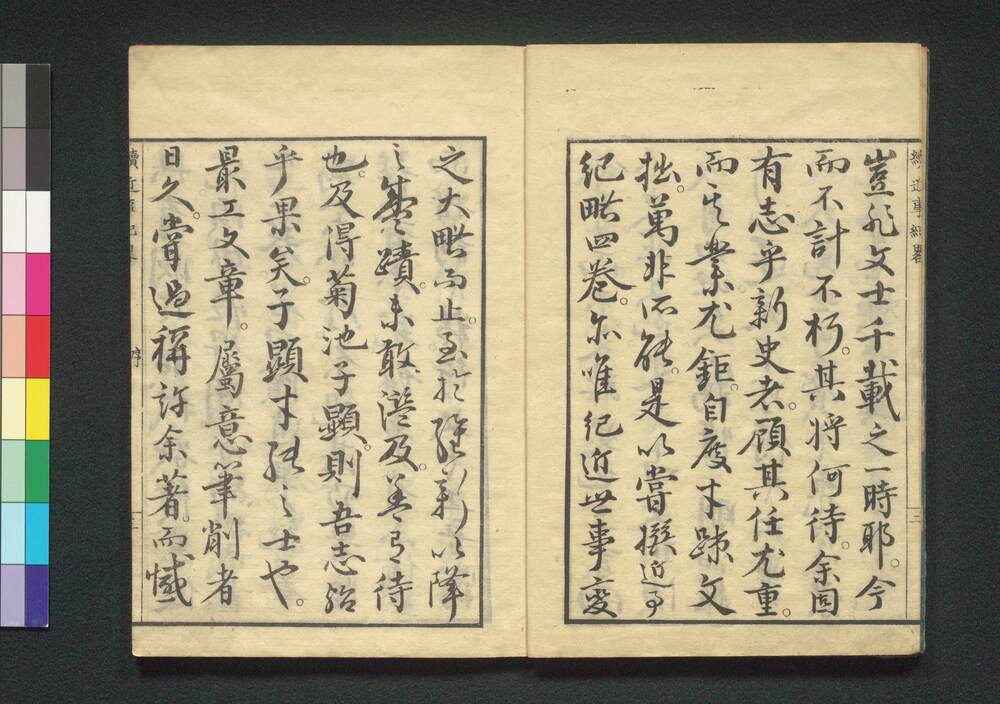 豈非文士千載之一時耶。今
而不計不朽。其將何待。余固
有志乎新史者。顧其任尤重。
而其業尤鉅。自度才踈文
拙。萬非所能。是以嘗撰近事
紀畧四卷。亦唯紀近世事變
之大畧而止。至於維新以降
之盛蹟。未敢濫及。蓋有待
也。及得菊池子顯。則吾志殆
乎果矣。子顯才學之士也。
最工文章。屬意筆削者
日久。嘗過稱許余著。而慽
續近事紀畧
序
二